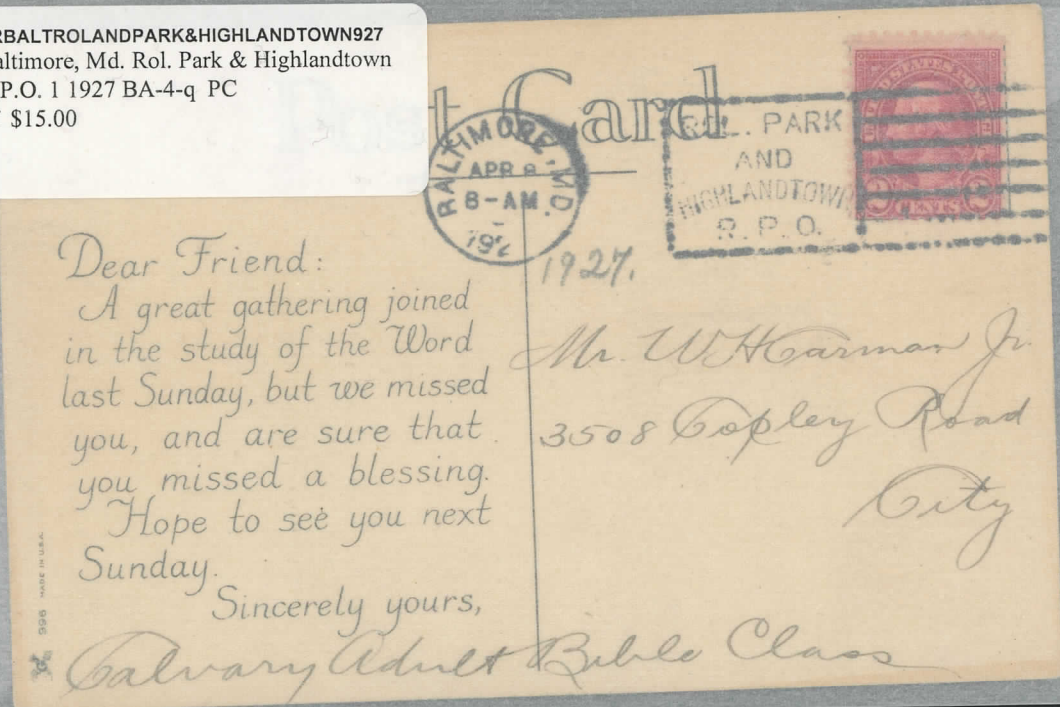 RBALTROLANDPARK&HIGHLANDTOWN927
altimore, Md. Rol. Park & Highlandtown
P.O. 1 1927 BA-4-q PC
$15.00
Card
BALTIMORE, MD.
APR 8
8-AM.
192
ROL. PARK
AND
HIGHLANDTOWN
R.P.O.
UNITED STATES POSTAGE
2 CENTS 2
1927.
Dear Friend:
A great gathering joined
in the study of the Word
last Sunday, but we missed
you, and are sure that
you missed a blessing.
Hope to see you next
Sunday.
Sincerely yours,
Calvary Adult Bible Class
Mr. W H Carman Jr.
3508 Copley Road
City
996 MADE IN U.S.A.